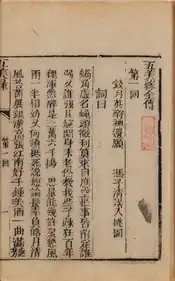 五美緣全傳
第一回
錢月英酧神還願 馮子清誤入桃園
詞曰
蝸角虛名蠅頭微利算來甚事皆前定誰
弱又誰強且趁閒身未老儘教我些子疎狂百年
裡渾然醉是三萬六千塲思量能幾許憂愁風
雨一半相妨又何須抵死說短論長幸皓月清
風苔茵展銀漢高張江南好千鍾美酒一曲滿庭
第一回